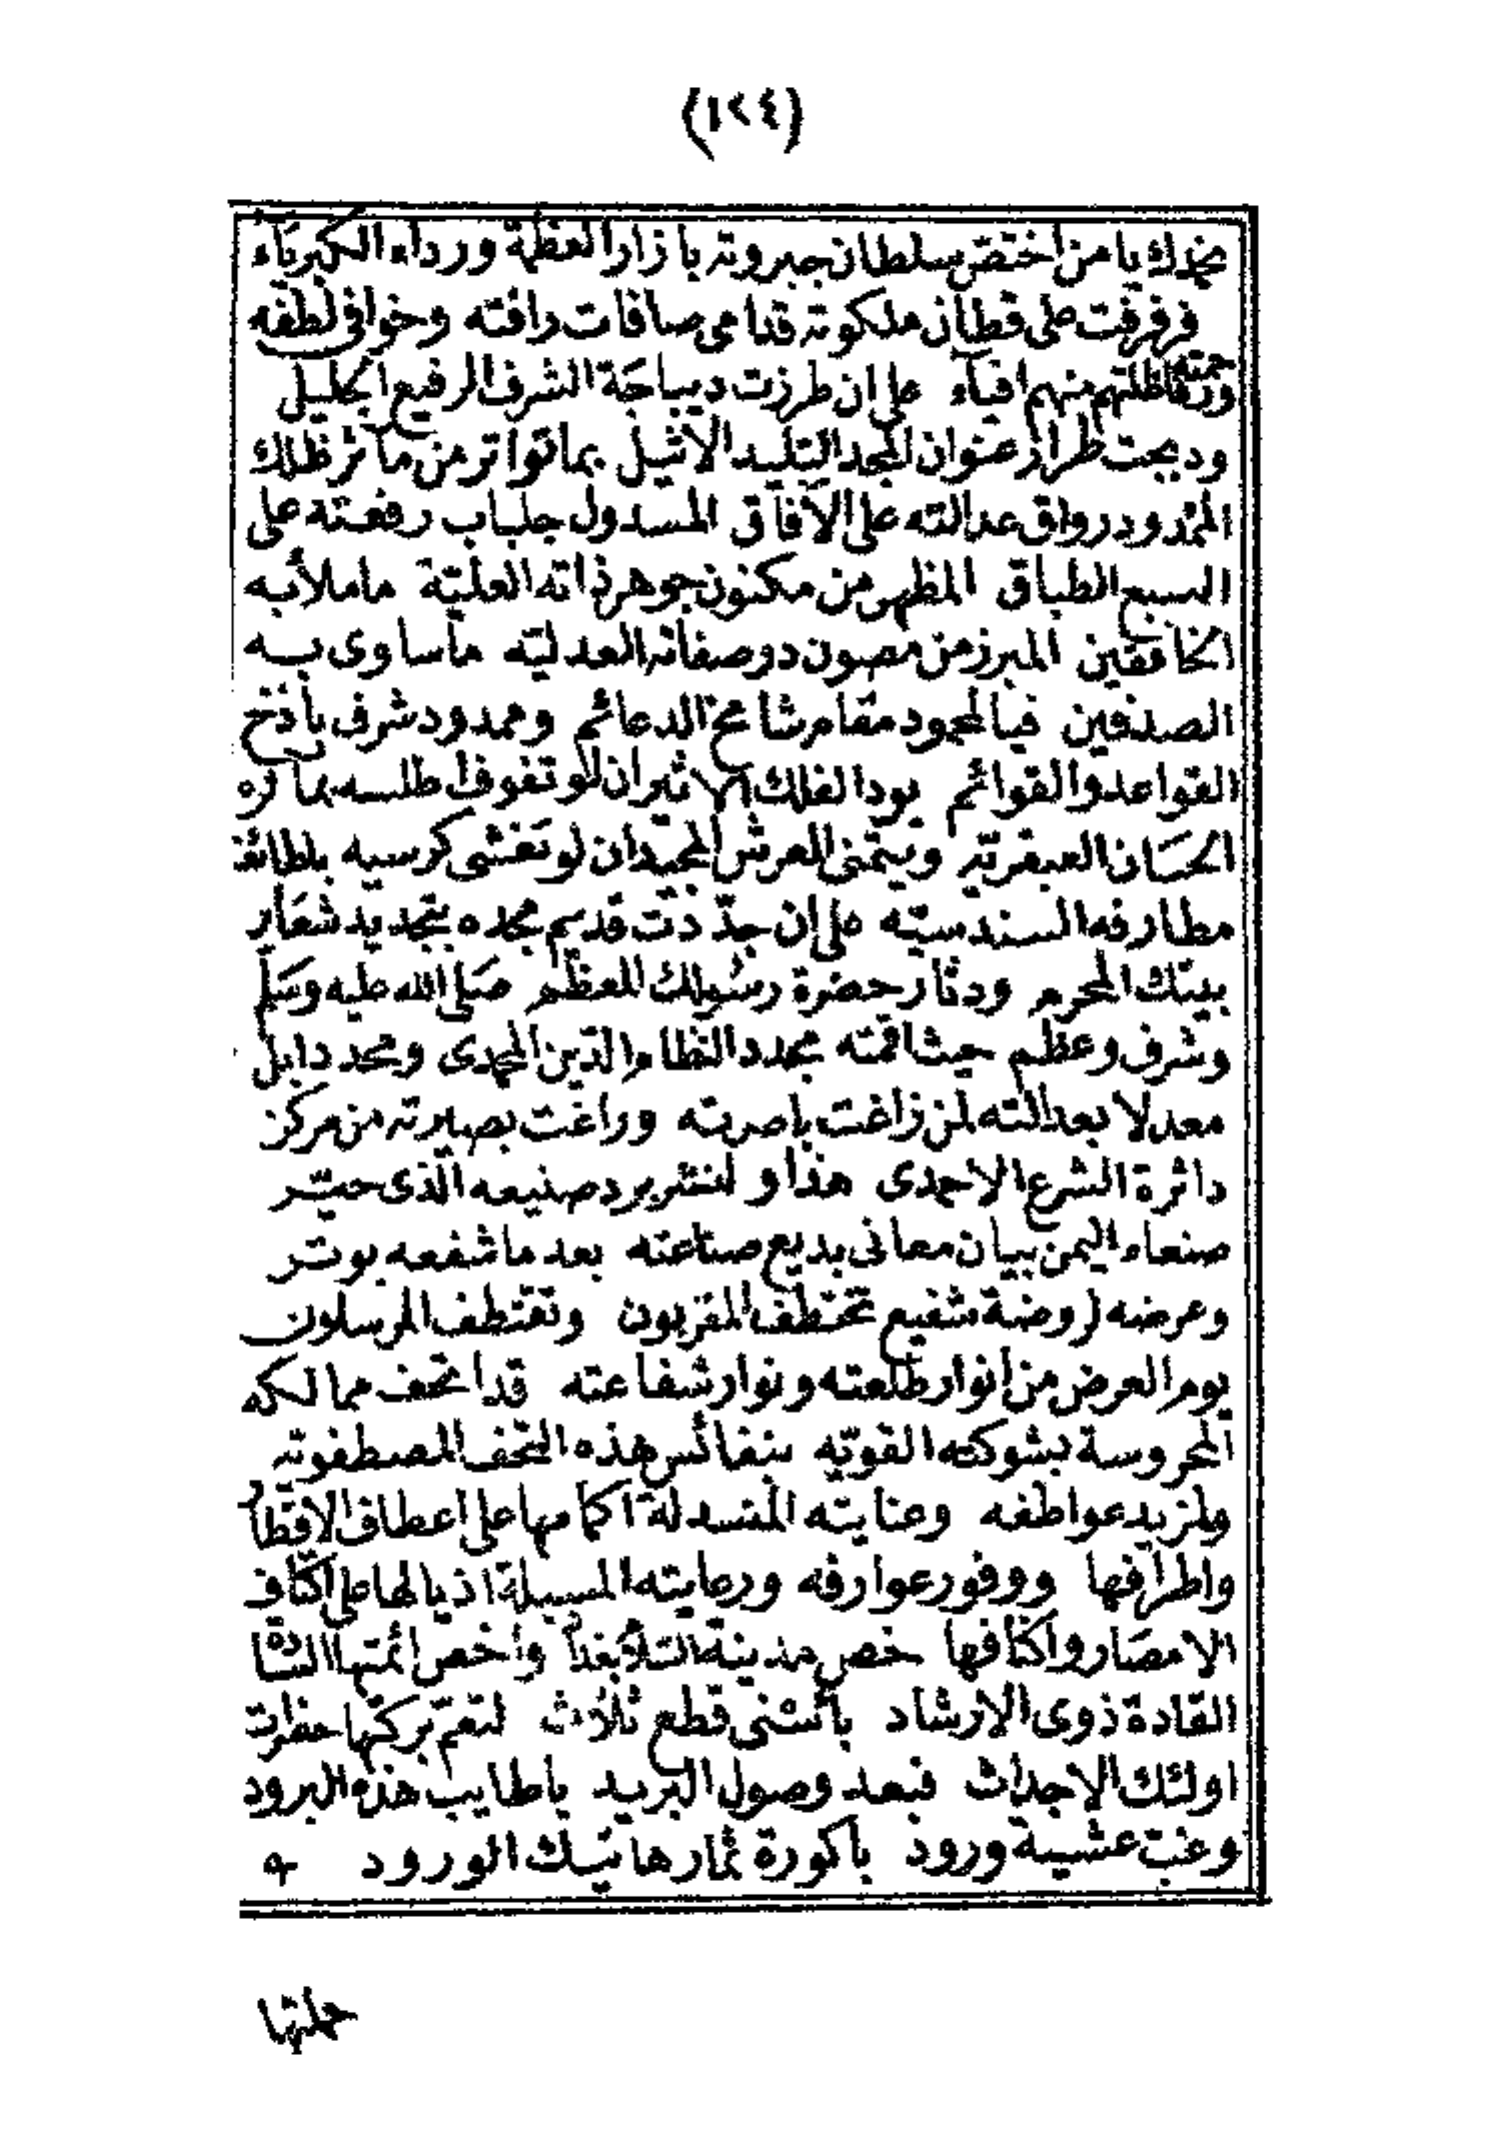 (١٢٤)
نحمدك يا من اختص سلطان جبروته بازار العظمة ورداء الكبرياء
فرفرفت على قطان ملكوته قدامى صافات رافته وخوافى لطفه
ورحمته فاظلتهم منهم افياء على ان طرزت ديباجة الشرف الرفيع الجليل
ودبجت طراز عنوان المجد التليد الأثيل بما تواتر من مآثر ظلك
الممدود رواق عدالته على الآفاق المسدول جلباب رفعته على
السبع الطباق المظهر من مكنون جوهر ذاته العليّة ما ملأ به
الخافقين المبرز من مصون در صفاته العدليّه ما ساوى به
الصدفين فيا لمحمود مقام شامخ الدعائم وممدود شرف باذخ
القواعد والقوائم يود الفلك الاثير ان لو تفوف اطلسه بمآزره
الحسان العبقريّه ويتمنى العرش المجيد ان لو تغشى كرسيه بلطائف
مطارفه السندسيّه على ان جدّدت قديم مجده بتجديد شعار
بيتك المحرم ودثار حضرة رسولك المعظم صلى الله عليه وسلم
وشرف وعظم حيث اقمته مجددا لنظام الدين المحمدى ومحددا بل
معدلا بعدالته لمن زاغت باصرته وراغت بصيرته من مركز
دائرة الشرع الاحمدى هذا ولنشر برد صنيعه الذى حيّر
صنعاء اليمن ببيان معانى بديع صناعته بعد ما شفعه بوتر
وعرضه لروضة شفيع تختطف المقربون وتقتطف المرسلون
يوم العرض من انوار طلعته ونوار شفاعته قد اتحف ممالكه
المحروسة بشوكته القويّه بنفائس هذه التحف المصطفويّه
ولمزيد عواطفه وعنايته المنسدلة اكمامها على اعطاف الاقطار
واطرافها ووفور عوارفه ورعايته المسبلة اذيالها على اكتاف
الامصار واكنافها خص مدينة السّلام بغداد واخص ائمتها السادة
القادة ذوى الارشاد باسنى قطع ثلاث لتعمّ بركتها حضرات
اولئك الاجداث فبعد وصول البريد باطايب هذه البرود
وغب عشية ورود باكورة ثمار هاتيك الورود
حملتها